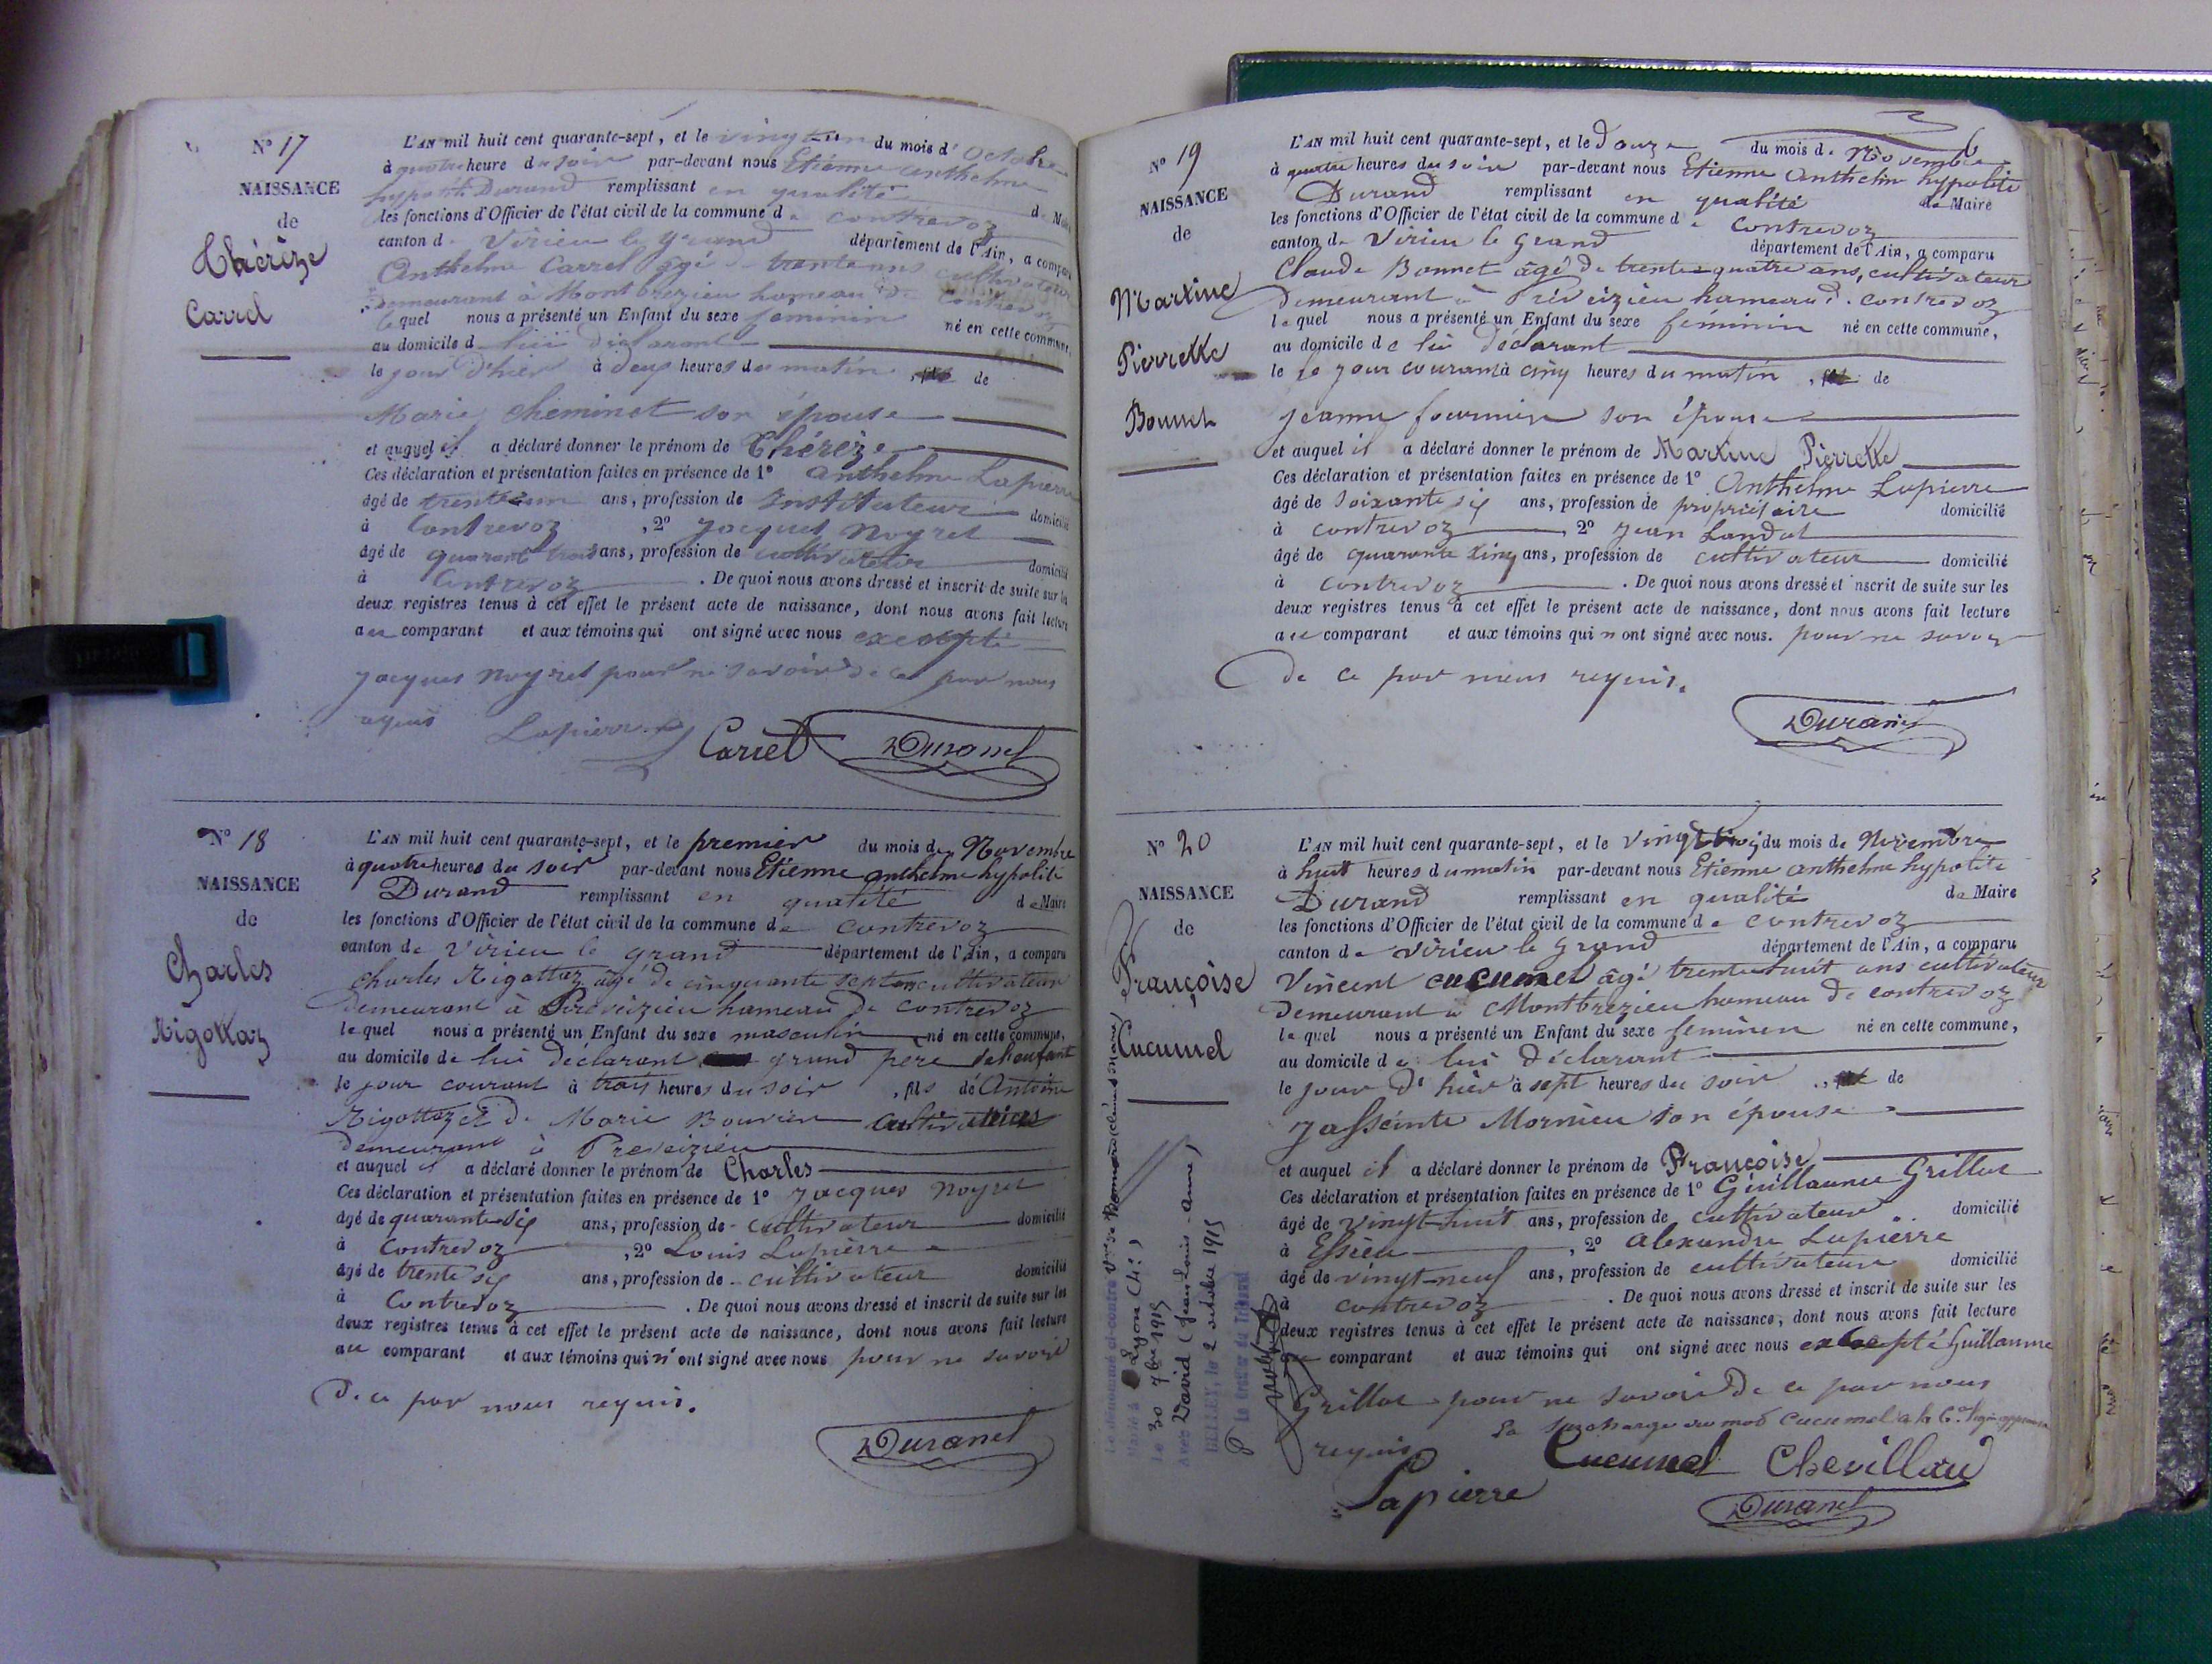 N° 17
NAISSANCE
de
Thérèze
Carrel
L'AN mil huit cent quarante-sept, et le vingt un du mois d'Octobre
à quatre heure du soir par-devant nous Etienne anthelme
hypolite Durand remplissant en qualité de Maire
les fonctions d'Officier de l'état civil de la commune de contrevoz
canton de Virieu le grand département de l'Ain, a comparu
Anthelme Carrel âgé trente ans cultivateur
demeurant à Montbrezieu hameau de Contrevoz
lequel nous a présenté un Enfant du sexe feminin né en cette commune,
au domicile d lui déclarant
le jour d'hier à deux heures du matin, de
Marie cheminet son épouse
et auquel il a déclaré donner le prénom de Thérèze
Ces déclaration et présentation faites en présence de 1° anthelme Lapierre
âgé de trente un ans, profession de Instituteur domicilié
à Contrevoz, 2° Jacques Noyret
âgé de quarante trois ans, profession de cultivateur domicilié
à Contrevoz. De quoi nous avons dressé et inscrit de suite sur les
deux registres tenus à cet effet le présent acte de naissance, dont nous avons fait lecture
au comparant et aux témoins qui ont signé avec nous excepté
Jacques Noyret pour ne savoir de ce par nous
requis Lapierre Carrel Durand
N° 18
NAISSANCE
de
Charles
Rigottaz
L'AN mil huit cent quarante-sept, et le premier du mois de Novembre
à quatre heures du soir par-devant nous Etienne anthelme hypolite
Durand remplissant en qualité de Maire
les fonctions d'Officier de l'état civil de la commune de contrevoz
canton de Virieu le grand département de l'Ain, a comparu
charles Rigottaz âgé de cinquante sept ans cultivateur
demeurant à Preveizieu hameau de contrevoz
lequel nous a présenté un Enfant du sexe masculin né en cette commune,
au domicile de lui declarant grand père de l'enfant
le jour courant à trois heures du soir, fils de Antoine
Rigottaz et de Marie Bouvier cultivateurs
demeurant à Preveizieu
et auquel il a déclaré donner le prénom de Charles
Ces déclaration et présentation faites en présence de 1° Jacques Noyret
âgé de quarante six ans, profession de cultivateur domicilié
à Contrevoz, 2° Louis Lapierre
âgé de trente six ans, profession de cultivateur domicilié
à Contrevoz. De quoi nous avons dressé et inscrit de suite sur les
deux registres tenus à cet effet le présent acte de naissance, dont nous avons fait lecture
au comparant et aux témoins qui n'ont signé avec nous pour ne savoir
de ce par nous requis.
Durand
N° 19
NAISSANCE
de
Martine
Pierrette
Bonnet
L'AN mil huit cent quarante-sept, et le douze du mois de Novembre
à quatre heures du soir par-devant nous Etienne Anthelm hypolite
Durand remplissant en qualité de Maire
les fonctions d'Officier de l'état civil de la commune de contrevoz
canton de Virieu le grand département de l'Ain, a comparu
Claude Bonnet âgé de trente quatre ans, cultivateur
demeurant à Préveizieu hameau d. contrevoz
lequel nous a présenté un Enfant du sexe féminin né en cette commune,
au domicile de lui déclarant
le jour courant à cinq heures du matin, de
Jeanne fournier son épouse
et auquel il a déclaré donner le prénom de Martine Pierrette
Ces déclaration et présentation faites en présence de 1° Anthelme Lapierre
âgé de soixante six ans, profession de propriétaire domicilié
à contrevoz, 2° Jean Landot
âgé de quarante cinq ans, profession de cultivateur domicilié
à contrevoz. De quoi nous avons dressé et inscrit de suite sur les
deux registres tenus à cet effet le présent acte de naissance, dont nous avons fait lecture
au comparant et aux témoins qui n ont signé avec nous. pour ne savoir
de ce par nous requis.
Durand
N° 20
NAISSANCE
de
Françoise
Cucumel
L'AN mil huit cent quarante-sept, et le vingt trois du mois de Novembre
à huit heures du matin par-devant nous Etienne anthelme hypolite
Durand remplissant en qualité de Maire
les fonctions d'Officier de l'état civil de la commune de contrevoz
canton de virieu le grand département de l'Ain, a comparu
Vincent cucumel âgé trente huit ans cultivateur
demeurant à Montbrezieu hameau de contrevoz
lequel nous a présenté un Enfant du sexe feminin né en cette commune,
au domicile de lui déclarant
le jour d'hier à sept heures du soir, de
Jasseinte Mornieu son épouse
et auquel il a déclaré donner le prénom de Françoise
Ces déclaration et présentation faites en présence de 1° Guillaume Grillot
âgé de vingt-huit ans, profession de cultivateur domicilié
à Essieu, 2° alexandre Lapierre
âgé de vingt-neuf ans, profession de cultivateur domicilié
à contrevoz. De quoi nous avons dressé et inscrit de suite sur les
deux registres tenus à cet effet le présent acte de naissance, dont nous avons fait lecture
au comparant et aux témoins qui ont signé avec nous excepté Guillaume
Grillot pour ne savoir de ce par nous
requis
La surcharge du mot Cucumel à la 6e ligne approuvée
Cucumel Chevillard
Lapierre Durand
Marié à Lyon (4e)
le 30 7bre 1915
avec David (Jean Louis anne)
BELLEY, le 2 octobre 1915
P le Greffier du Tribunal